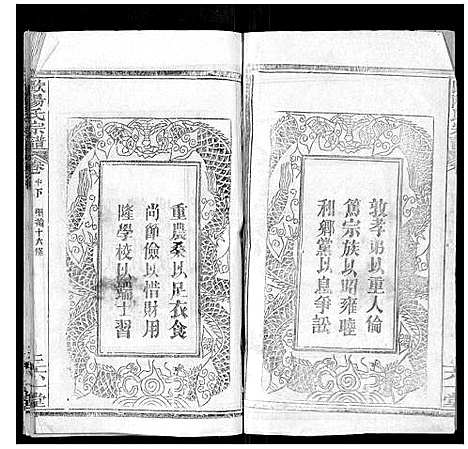 敦孝弟以重人倫
篤宗族以昭雍睦
和鄉黨以息爭訟
重農桑以足衣食
尚節儉以惜財用
隆學校以端士習
歐陽氏宗譜
卷中下
聖諭十六條
六一堂